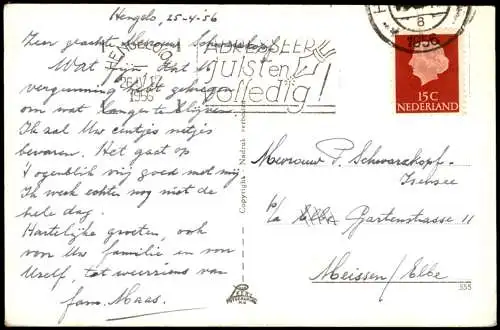 Hengelo, 25-4-56
Zeer geachte Mevrouw Schwarzkopf
Wat fijn dat U
vergunning hebt gekregen
om wat langer te blijven
Ik zal Uw centjes netjes
bewaren. Het gaat op
't ogenblik vrij goed met mij
Ik werk echter nog niet de
hele dag.
Hartelijke groeten, ook
van Uw familie en van
Uzelf, tot weerziens van
fam. Maas.
HENGELO
1956
ADRESSEER
juist en
volledig!
8
1956
15C
NEDERLAND
Copyright - Nadruk verboden
Mevrouw P. Schwarzkopf-
Isensee
p/a Elbe Gartenstrasse 11
Meissen/Elbe
555